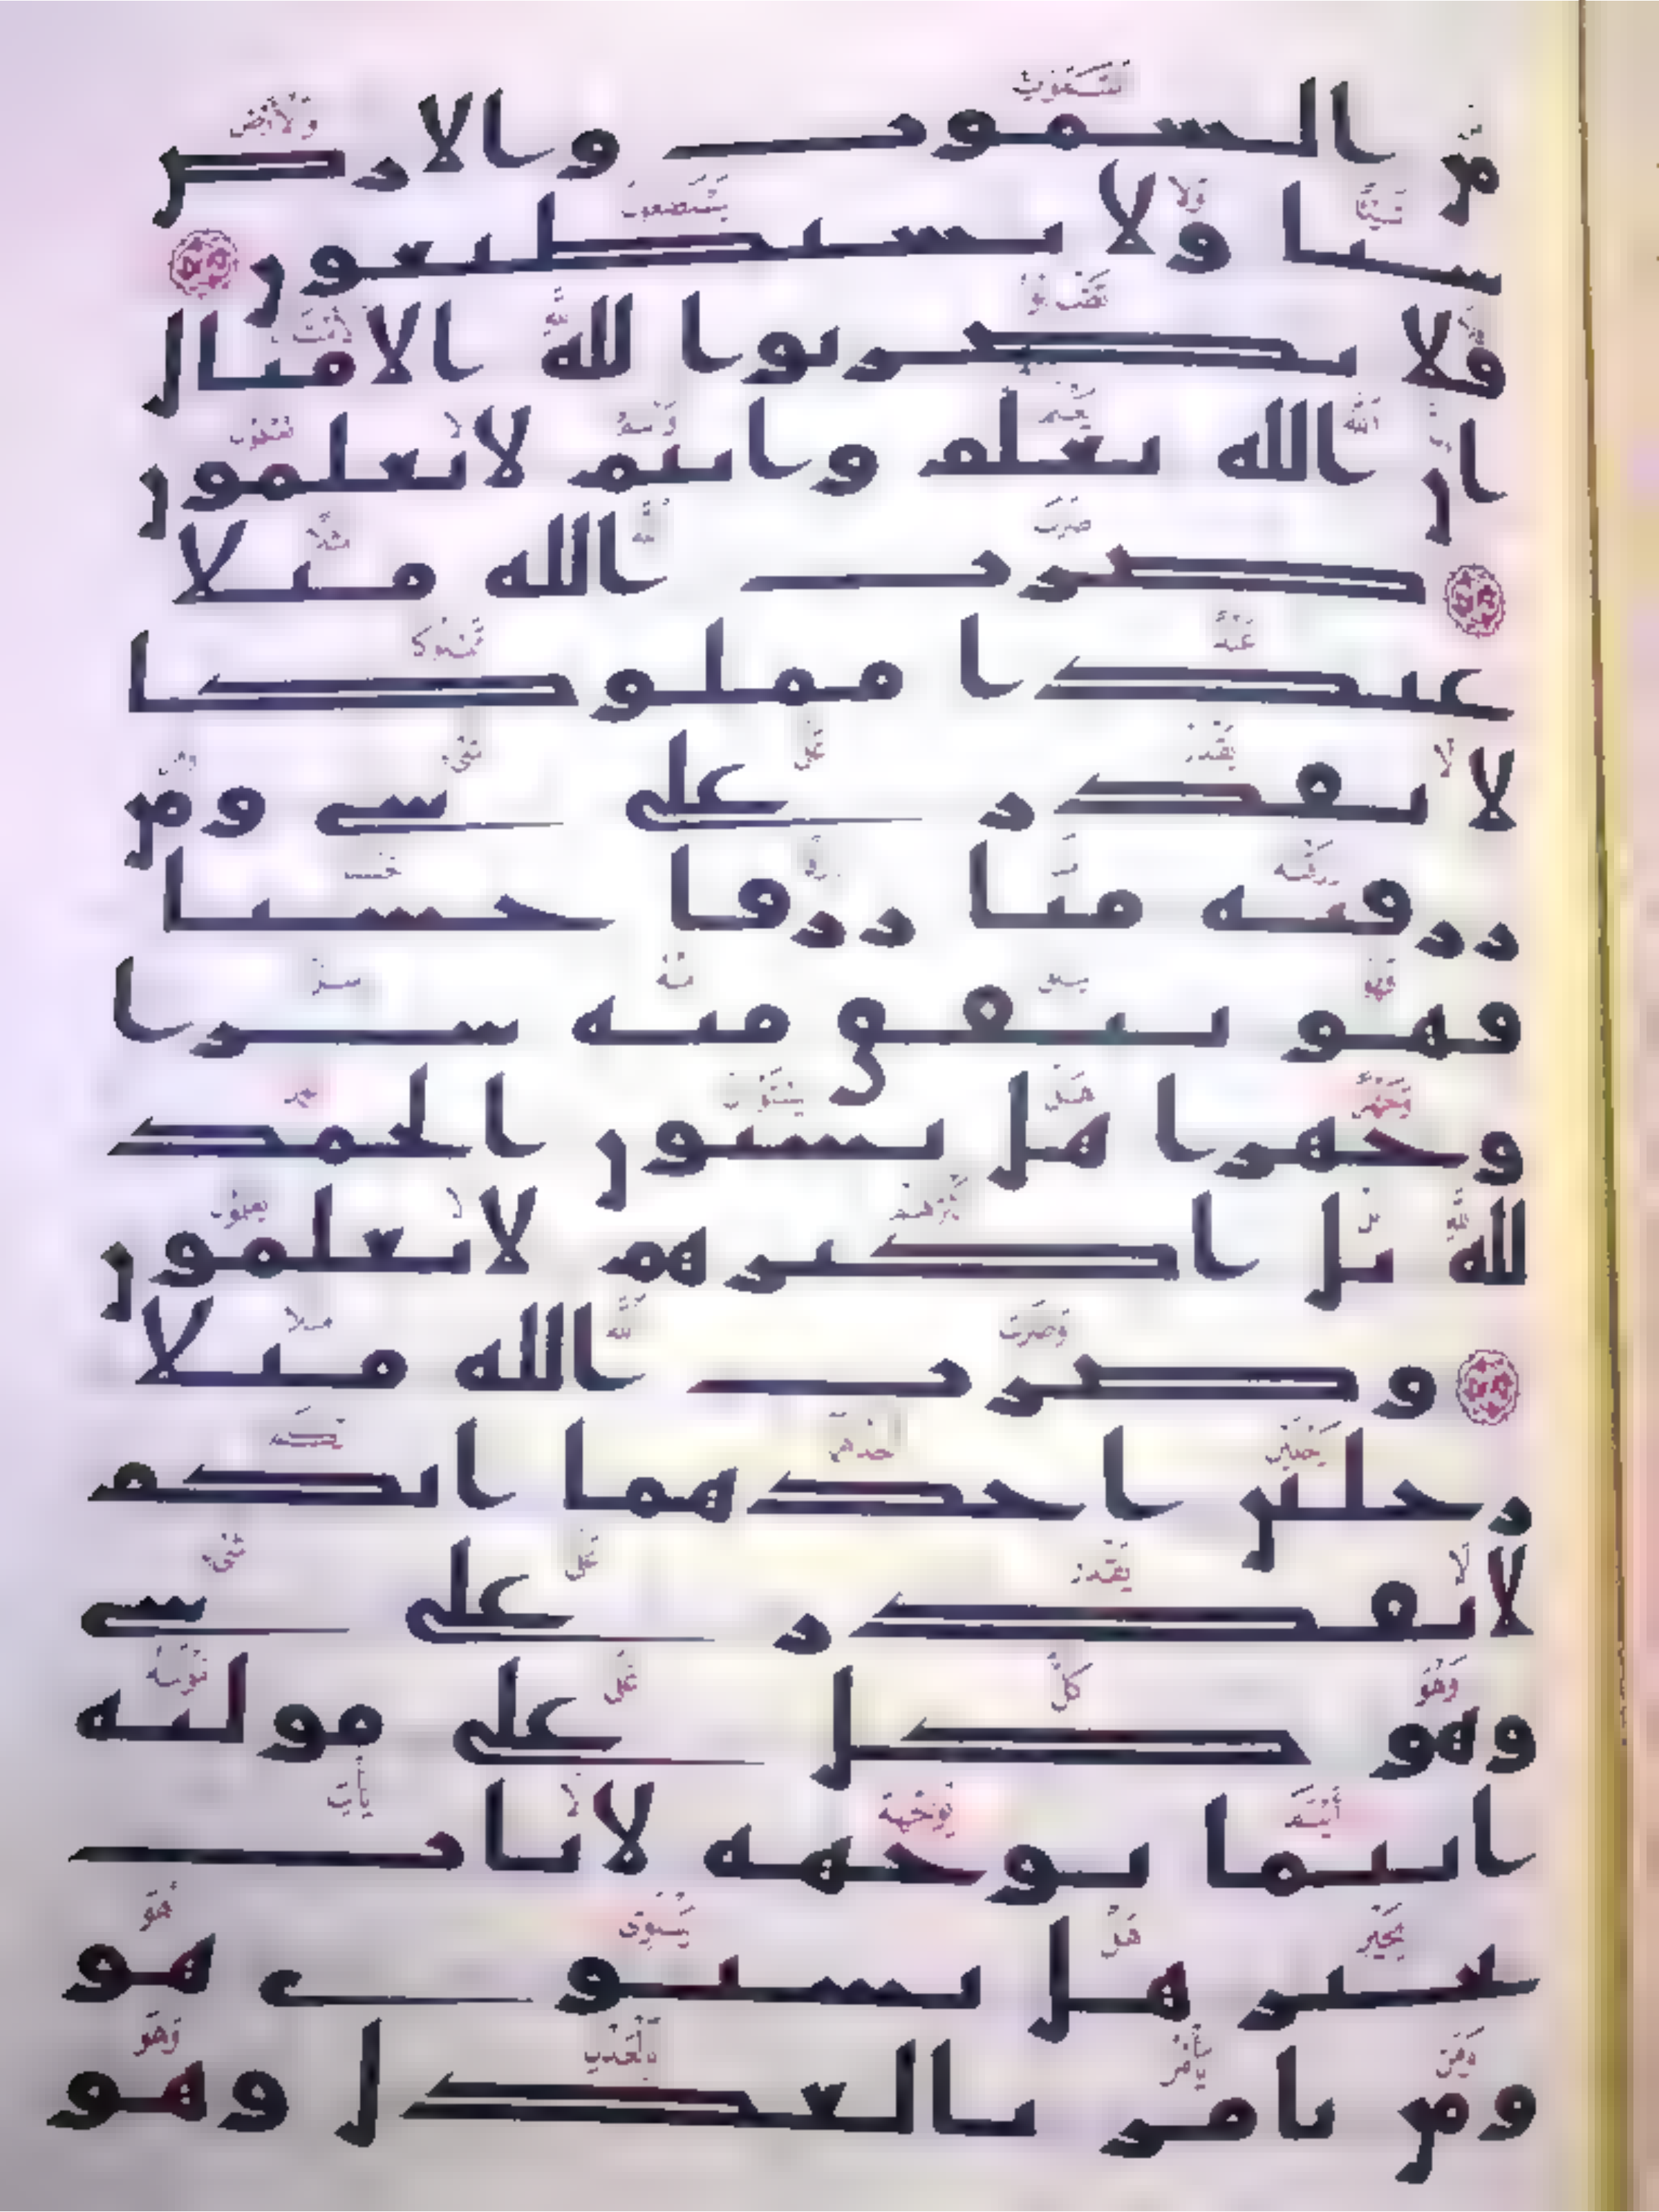 من السموت والارض
شيا ولا يستطيعون
فلا تضربوا لله الامثال
ان الله يعلم وانتم لا تعلمون
ضرب الله مثلا
عبدا مملوكا
لا يقدر على شي ومن
رزقنه منا رزقا حسنا
فهو ينفق منه سرا
وجهرا هل يستون الحمد
لله بل اكثرهم لا يعلمون
وضرب الله مثلا
رجلين احدهما ابكم
لا يقدر على شي
وهو كل على موليه
اينما يوجهه لا يات
بخير هل يستوي هو
ومن يامر بالعدل وهو